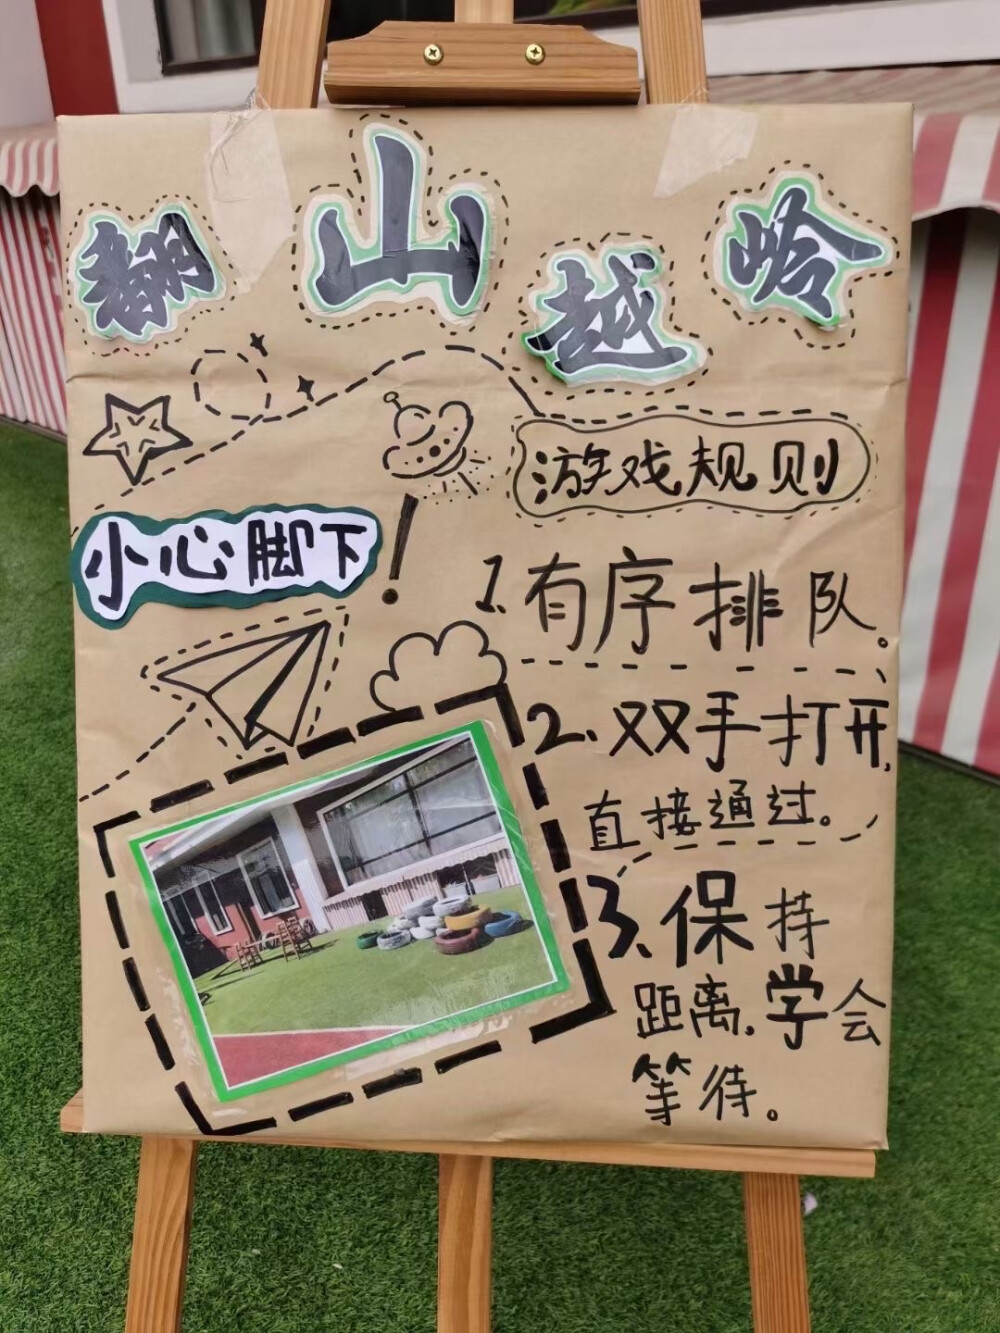 翻山越岭
游戏规则
小心脚下!
1.有序排队。
2.双手打开,
直接通过。
3.保持
距离.学会
等待。